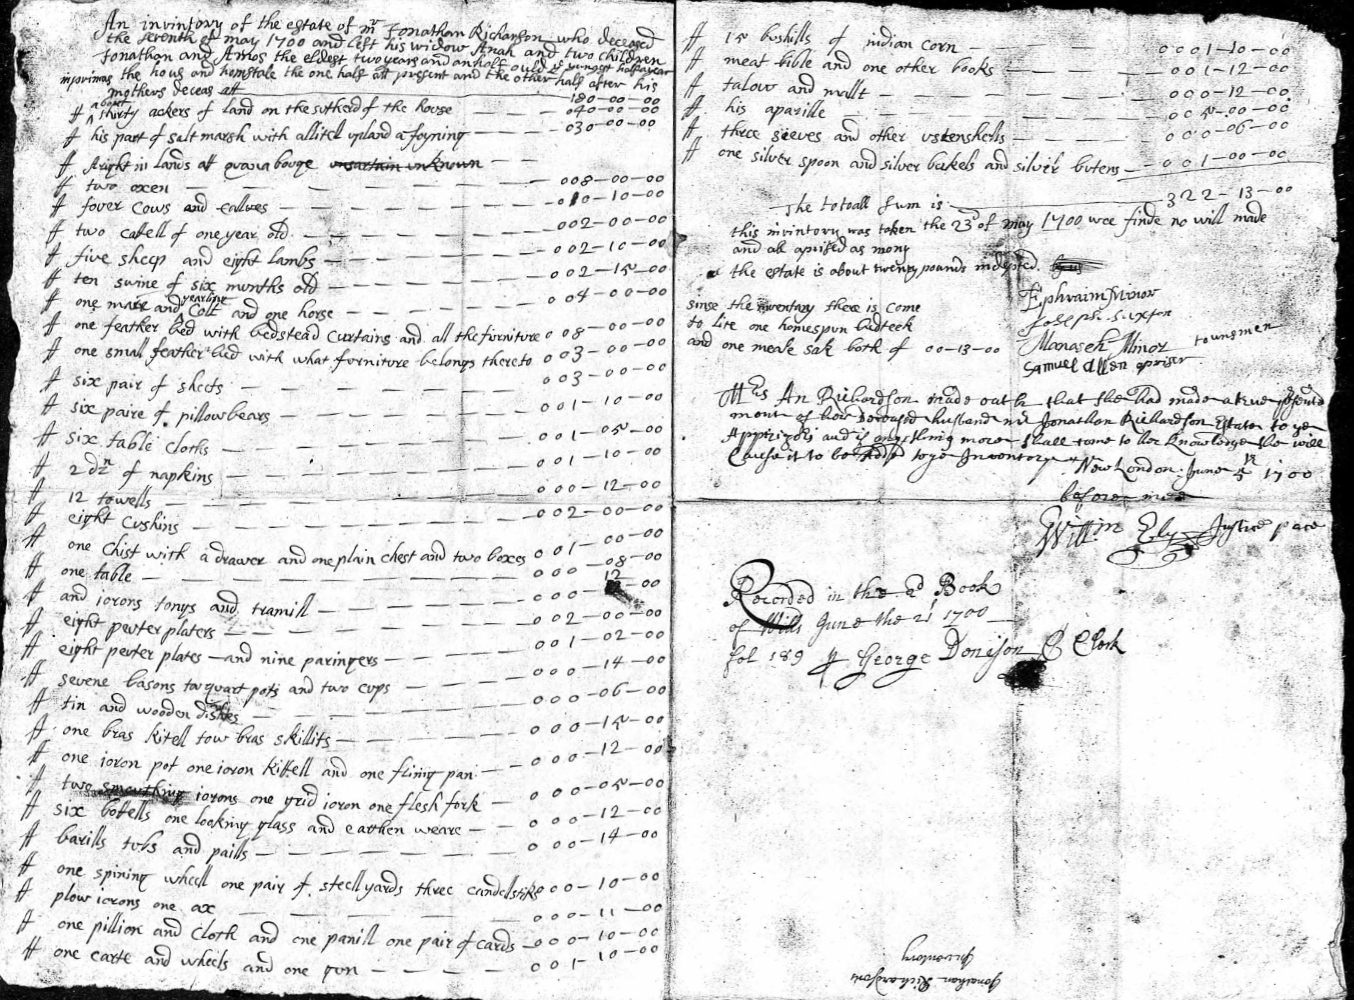 An invintory of the estate of mr Jonathan Richarson who deceased
the seventh of may 1700 and left his widow Anah and two children
Jonathan and Amos the eldest two years and an half ould ye youngest half a year
inprimas the hous and homstale the one half att present and the other half after his
mothers deceas att — 180-00-00
# about thirty ackers of land on the sutherd of the house — 040-00-00
# his part of salt marsh with all itell upland a joyning — 030-00-00
# A right in lands att quana bouge uncartain unknown —
# two oxen — 008-00-00
# fower cows and calwes — 010-10-00
# two catell of one year old — 002-00-00
# five sheep and eight lambs — 002-10-00
# ten swine of six months old — 002-15-00
# one mare and yearling Colt and one horse — 004-00-00
# one feather bed with bedstead curtains and all the furniture 008-00-00
# one small feather bed with what furniture belongs thereto 003-00-00
# six pair of sheets — 003-00-00
# six paire of pillowbears — 001-10-00
# six table cloths — 001-05-00
# 2 dzn of napkins — 001-10-00
# 12 towells — 000-12-00
# eight cushins — 002-00-00
# one chist with a drawer and one plain chest and two boxes 001-00-00
# one table — 000-08-00
# and iorons tongs and tramill — 000-12-00
# eight pewter platers — 002-00-00
# eight pewter plates — and nine paringers — 001-02-00
# sevene basons tow quart pots and two cups — 000-14-00
# tin and wooden dishes — 000-06-00
# one bras kitell tow bras skillits — 000-15-00
# one ioron pot one ioron kittell and one fling pan — 000-12-00
# two iorons one grid ioron one flesh fork — 000-05-00
# six bottells one looking glass and earthen weare — 000-12-00
# barills tubs and paills — 000-14-00
# one spining wheell one pair of steellyards three candelstiks 000-10-00
# plow iorons one ax — 000-11-00
# one pillion and cloth and one panill one pair of cards — 000-10-00
# one carte and wheels and one gun — 001-10-00
# 15 bushills of indian corn — 0001-10-00
# meat bible and one other books — 001-12-00
# talow and mallt — 000-12-00
# his aparille — 005-00-00
# three seeves and other ustenshells — 000-06-00
# one silver spoon and silver buckels and silver butens — 001-00-00
the totoall sum is — 322-13-00
this invintory was taken the 23d of may 1700 wee finde no will made
and all aprised as mony
the estate is about twenty pounds indepted.
sinse the inventary there is come
to lite one homespun bedteek
and one meale sak both of 00-13-00
Ephraim Minor
Joseph Saxton
Manaseh Minor townsmen
Samuel Allen apriser
Mrs An Richardson made oath that she had made a true
ment of her deceased husband mr Jonathan Richardson Estate to ye
Apprizors and if any thing more shall come to her knowledge she will
Cause it to be to ye Inventory
New London June 1700
before mee
Willm Ely Justice pace
Recorded in the 2d Book
of Wills June the 21 1700
fol 189 # George Denison Clerk
Jonathan Richardsons
Inventory